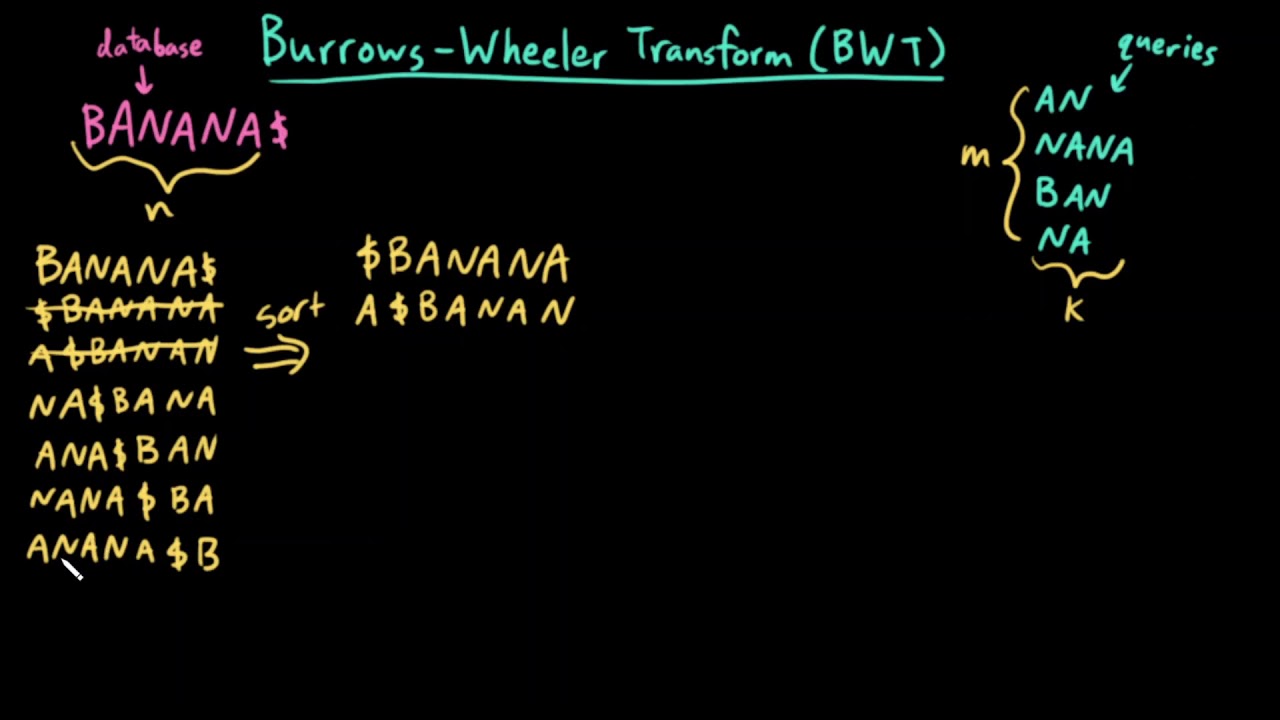 Burrows-Wheeler Transform (BWT)
database
BANANA$
n
queries
AN
NANA
BAN
NA
m
k
BANANA$
$BANANA
A$BANAN
NA$BANA
ANA$BAN
NANA$BA
ANANA$B
sort
$BANANA
A$BANAN